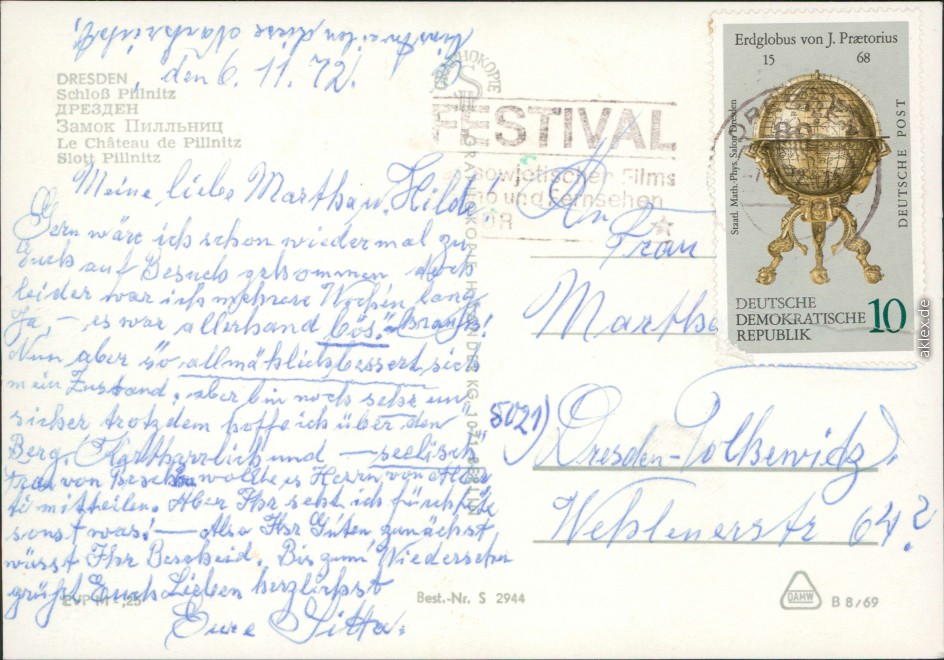 den 6. 11. 72.
DRESDEN
Schloß Pillnitz
ДРЕЗДЕН
Замок Пилльниц
Le Château de Pillnitz
Slott Pillnitz
Meine liebe Martha u. Hilde!
Gern wäre ich schon wiedermal zu
Euch auf Besuch gekommen, doch
leider war ich mehrere Wochen lang
Ja, – es war allerhand bös."
Nun aber so allmählich bessert sich
mein Zustand, aber bin noch sehr un-
sicher trotzdem hoffe ich über den
Berg. Körperlich und – seelisch
Frau von wollte es Herrn von
mitteilen. Aber Ihr seht ich fürchte
sonst was! – Also Ihr Guten zunächst
wüsst Ihr Bescheid. Bis zum Wiedersehn
grüßt Euch Lieben herzlichst
Eure
EVP M -,25
Best.-Nr. S 2944
FESTIVAL
sowjetischen Films
Kino und Fernsehen
DDR
Erdglobus von J. Prætorius
15 68
Staatl. Math. Phys. Salon Dresden
DEUTSCHE POST
DEUTSCHE
DEMOKRATISCHE
REPUBLIK 10
An
Frau
Martha
8021) Dresden-Tolkewitz,
Wehlenerstr 64?
DAMW
B 8/69
aklex.de